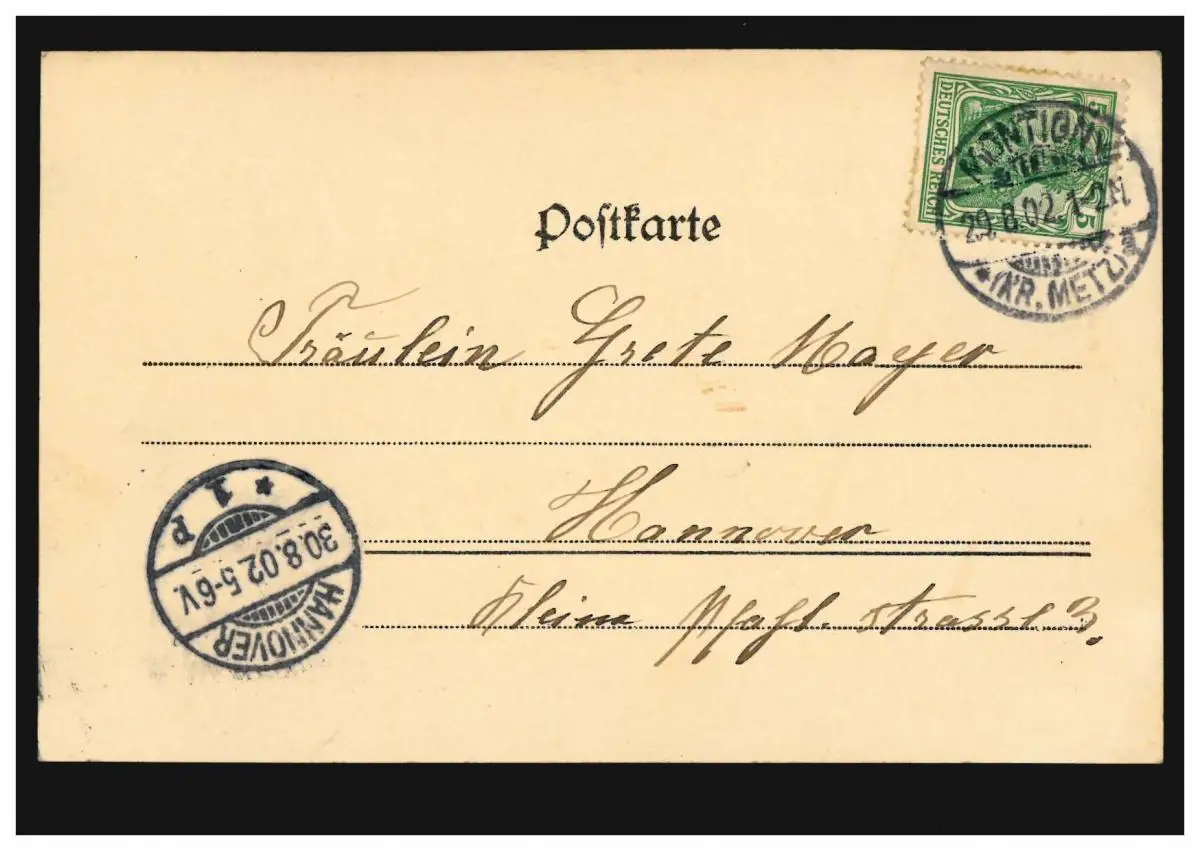 5
DEUTSCHES REICH
5
MONTIGNY
29.8.02.1-2N
* (KR. METZ) *
Postkarte
Fräulein Grete Mayer
Hannover
Kleine Pfahl. strasse 3.
* 1 P
30.8.02.5-6V.
HANNOVER